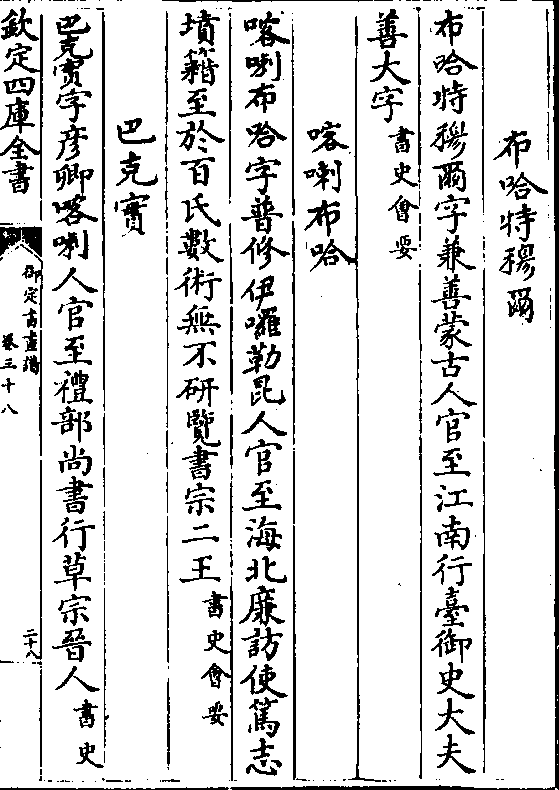 布哈特穆爾
布哈特穆爾字兼善蒙古人官至江南行臺御史大夫
善大字書史會要
喀喇布哈
喀喇布哈字普修伊囉勒昆人官至海北廉訪使篤志
墳籍至於百氏數術無不研覽書宗二王書史會要
巴克實
巴克實字彦卿喀喇人官至禮部尚書行草宗晉人書史
欽定四庫全書
御定書畫譜
卷三十八
二十八